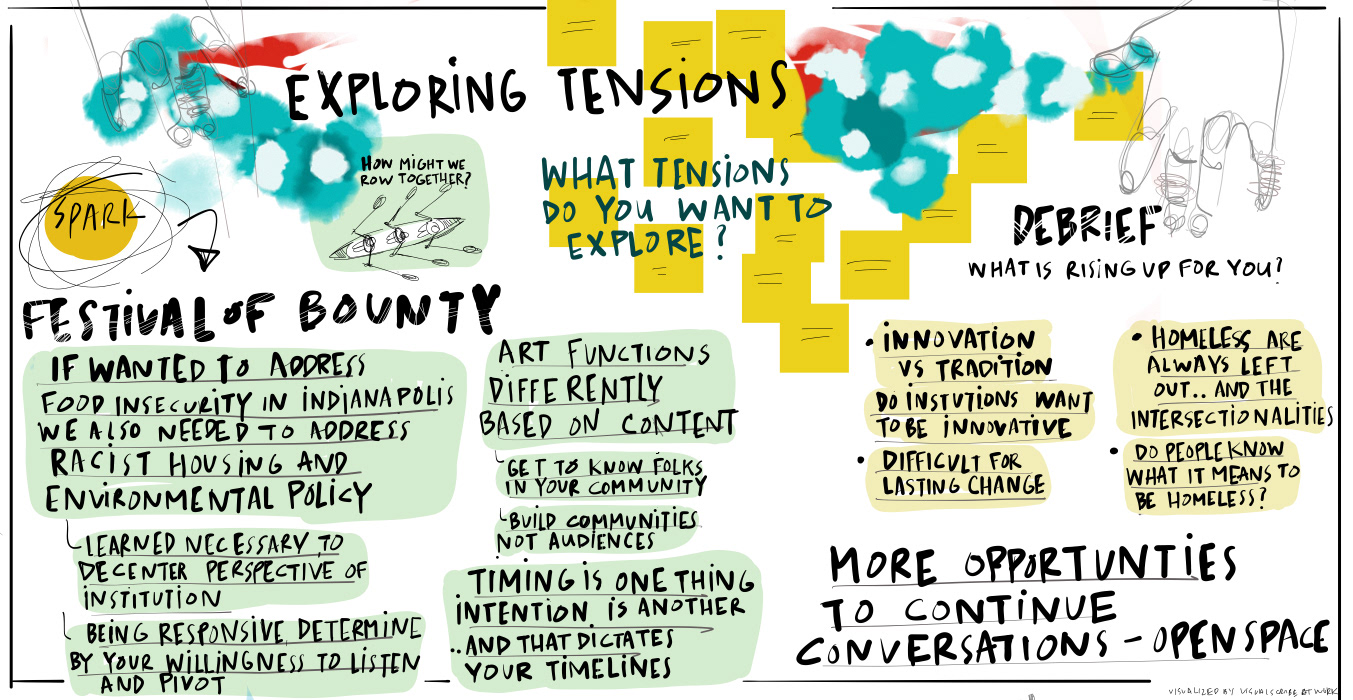 EXPLORING TENSIONS
SPARK
HOW MIGHT WE
ROW TOGETHER?
FESTIVAL OF BOUNTY
IF WANTED TO ADDRESS
FOOD INSECURITY IN INDIANAPOLIS
WE ALSO NEEDED TO ADDRESS
RACIST HOUSING AND
ENVIRONMENTAL POLICY
LEARNED NECESSARY TO
DECENTER PERSPECTIVE OF
INSTITUTION
BEING RESPONSIVE, DETERMINE
BY YOUR WILLINGNESS TO LISTEN
AND PIVOT
ART FUNCTIONS
DIFFERENTLY
BASED ON CONTENT
GET TO KNOW FOLKS
IN YOUR COMMUNITY
BUILD COMMUNITIES
NOT AUDIENCES
TIMING IS ONE THING
INTENTION IS ANOTHER
..AND THAT DICTATES
YOUR TIMELINES
WHAT TENSIONS
DO YOU WANT TO
EXPLORE?
DEBRIEF
WHAT IS RISING UP FOR YOU?
• INNOVATION
VS TRADITION
DO INSTUTIONS WANT
TO BE INNOVATIVE
• DIFFICULT FOR
LASTING CHANGE
• HOMELESS ARE
ALWAYS LEFT
OUT.. AND THE
INTERSECTIONALITIES
• DO PEOPLE KNOW
WHAT IT MEANS TO
BE HOMELESS?
MORE OPPORTUNTIES
TO CONTINUE
CONVERSATIONS - OPEN SPACE
VISUALIZED BY VISUAL SCRIBE AT WORK